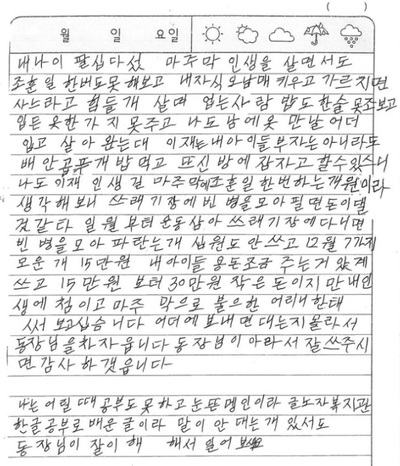 ( )
월 일 요일
내나이 팔십다섯 마주막 인생을 살면서도
조훈일 한번도못해보고 내자식 오남매 키우고 가르치면
사느라고 힘들게 살며 업는사람 밥도한술못조보고
입든 옷한가지 못주고 나도 남에옷 만날 어더
입고 살아 왔는대 이재는 내아이들 부자는 아니라도
배안곱푸개 밥먹고 뜨신 방에 잠자고 할수있스니
나도 이재 인생길 마주막에 조훈일 한번하는개 원이라
생각해보니 쓰래기장에 빈병을 모아 필면 돈이댈
것같다 일월부터 운동삼아 쓰래기장에 다니면
빈병을 모아 파란는개 십원도 안쓰고 12월 7가지
모운개 15만원 내아이들 용돈조금 주는거 았게
쓰고 15만원 보터 30만원 작은 돈이지만 내인
생에 첨이고 마주막으로 불으한 어리니한태
써 보고십습니다 어더에 보내면 대는지 몰라서
동장님을 차자 옵니다 동장님이 아라서 잘쓰주시
면 감사하갯읍니다
나는 어릴때 공부도못하고 눈뜬멩인이라 글노자복지관
한글공부로 배운글이라 말이 안대는개 있서도
동장님이 잘이해 해서 일어 보세요